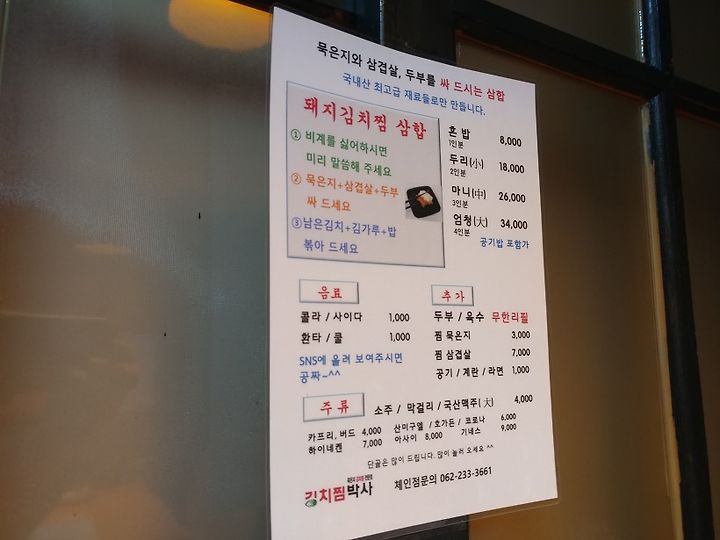 묵은지와 삼겹살, 두부를 싸 드시는 삼합
국내산 최고급 재료들로만 만듭니다.
돼지김치찜 삼합
① 비계를 싫어하시면
미리 말씀해 주세요
② 묵은지+삼겹살+두부
싸 드세요
③남은김치+김가루+밥
볶아 드세요
혼밥 8,000
1인분
두리(小) 18,000
2인분
마니(中) 26,000
3인분
엄청(大) 34,000
4인분
공기밥 포함가
음료
콜라 / 사이다 1,000
환타 / 쿨 1,000
SNS에 올려 보여주시면
공짜~^^
추가
두부 / 육수 무한리필
찜 묵은지 3,000
찜 삼겹살 7,000
공기 / 계란 / 라면 1,000
주류
소주 / 막걸리 / 국산맥주(大) 4,000
카프리, 버드 4,000 산미구엘 / 호가든 / 코로나 6,000
하이네켄 7,000 아사이 8,000 기네스 9,000
단골은 많이 드립니다. 많이 놀러 오세요 ^^
김치찜박사 체인점문의 062-233-3661